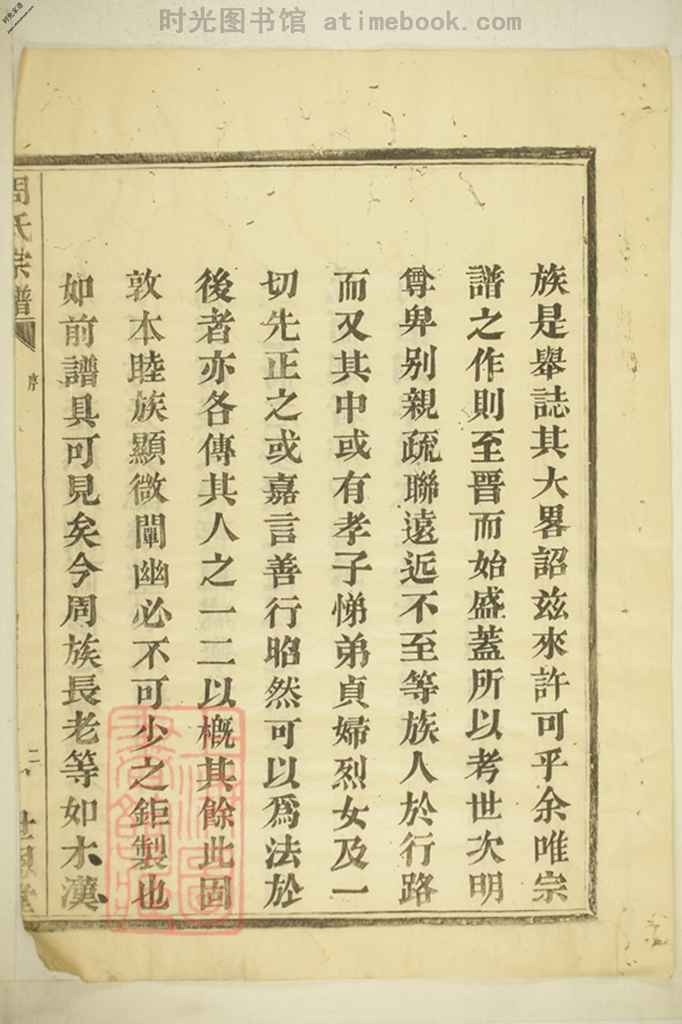 时光图书馆 atimebook.com
族是舉誌其大畧詔兹來許可乎余唯宗
譜之作則至晋而始盛蓋所以考世次明
尊卑别親疏聯遠近不至等族人於行路
而又其中或有孝子悌弟貞婦烈女及一
切先正之或嘉言善行昭然可以爲法於
後者亦各傳其人之一二以概其餘此固
敦本睦族顯微闡幽必不可少之鉅製也
如前譜具可見矣今周族長老等如木漢
周氏宗譜
序
二